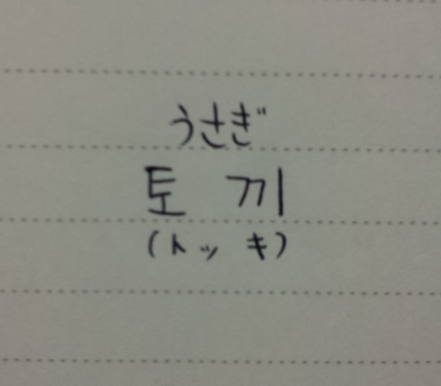 うさぎ
토끼
(トッキ)